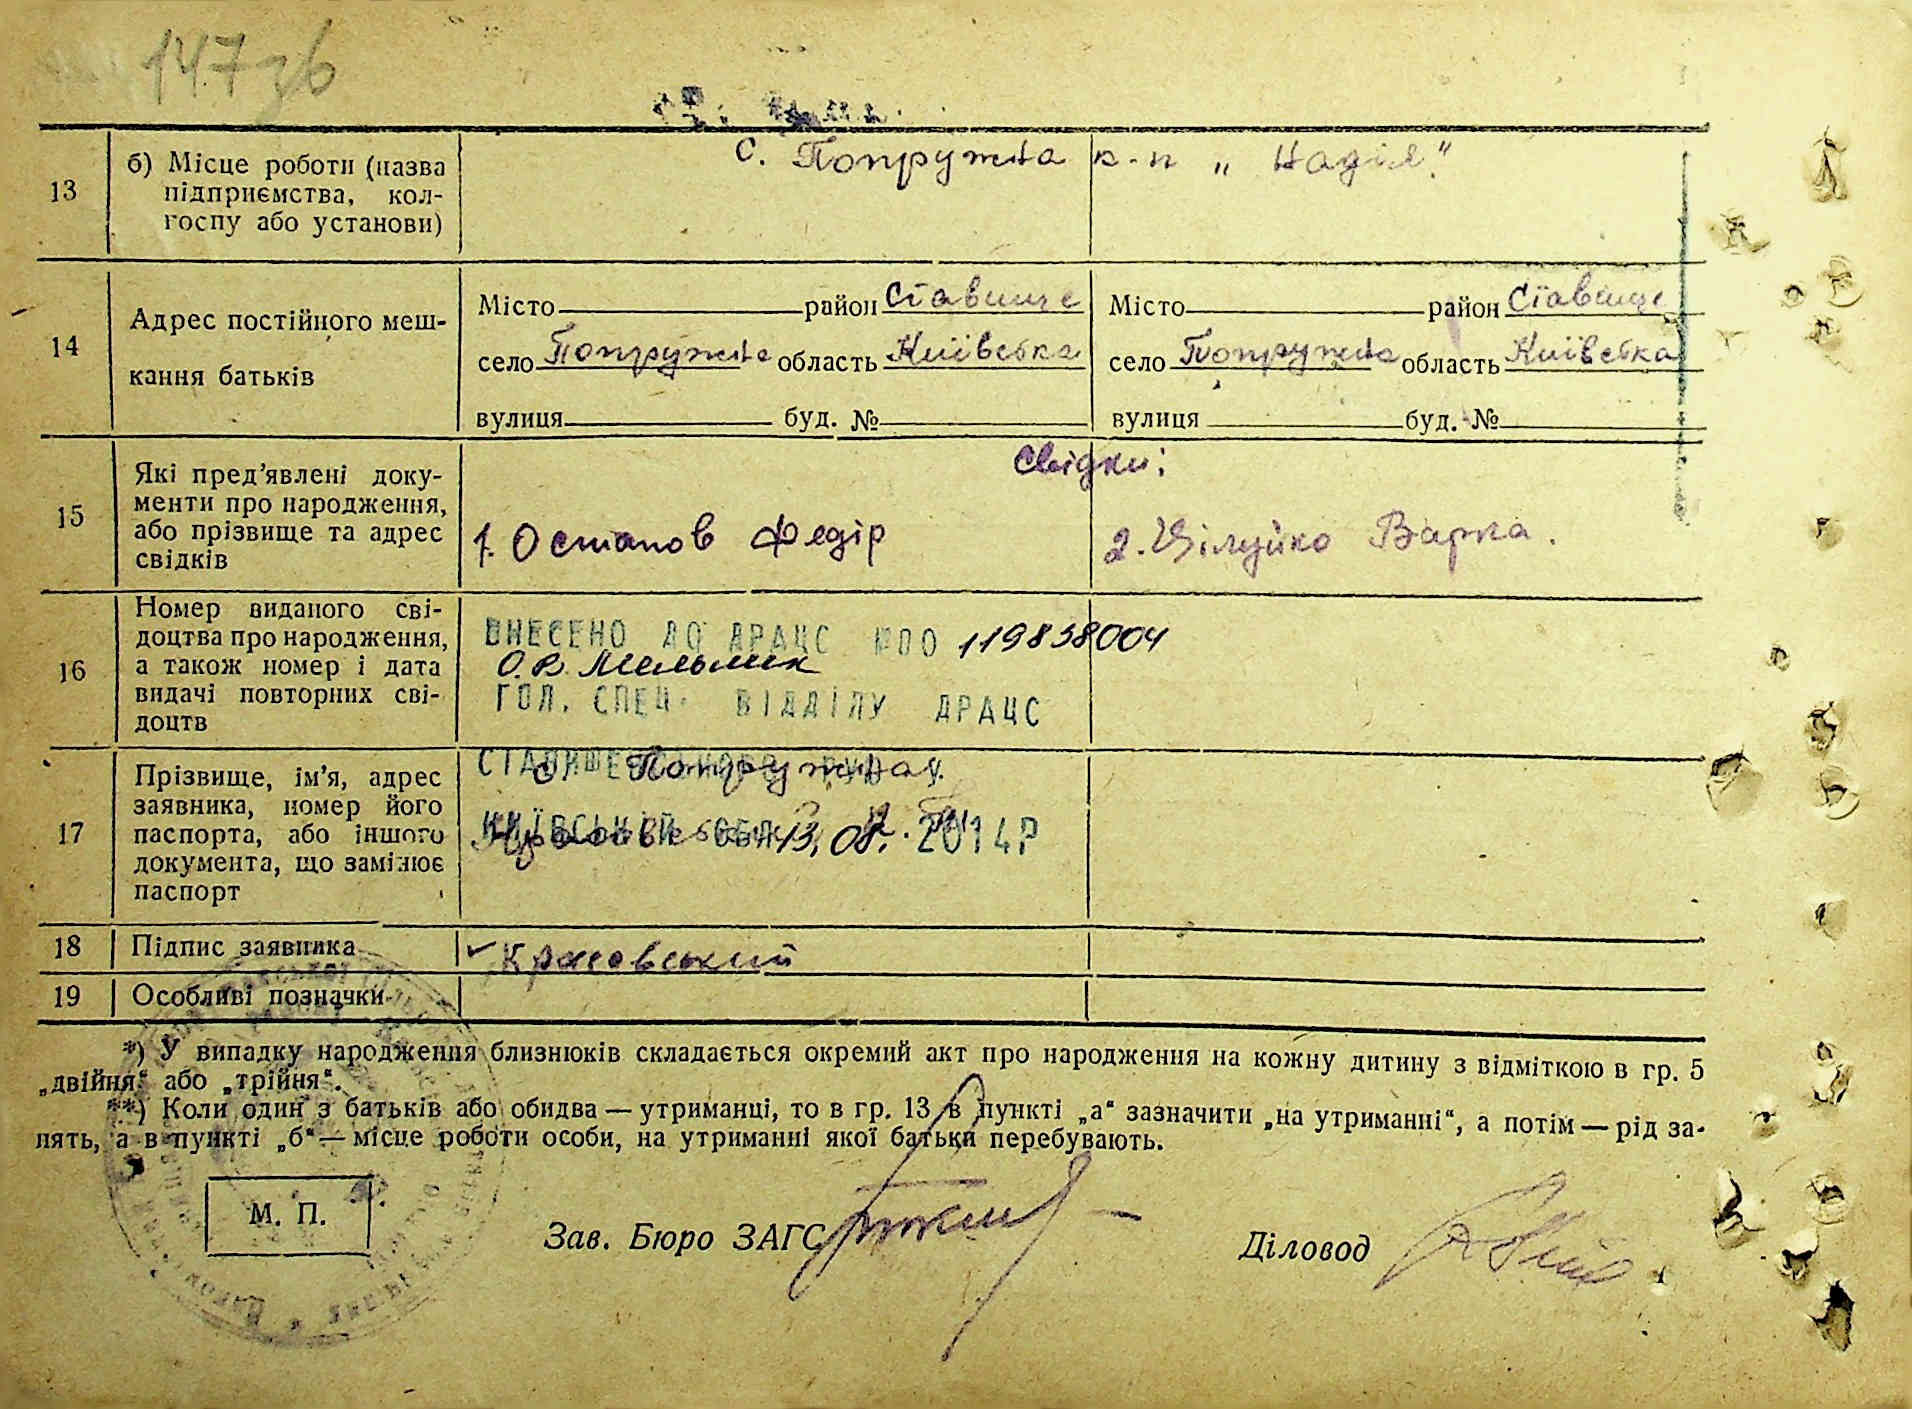 147 зв
13
б) Місце роботи (назва
підприємства, кол-
госпу або установи)
с. Попружна к-п „Надія".
14
Адрес постійного меш-
кання батьків
Місто район Ставище
село Попружна область Київська
вулиця буд. №
Місто район Ставище
село Попружна область Київська
вулиця буд. №
15
Які пред'явлені доку-
менти про народження,
або прізвище та адрес
свідків
Свідки:
1. Остапов Федір
2. Цілуйко Варка.
16
Номер виданого сві-
доцтва про народження,
а також номер і дата
видачі повторних сві-
доцтв
ВНЕСЕНО ДО ДРАЦС 119838004
О.В. Мельник
ГОЛ. СПЕЦ. ВІДДІЛУ ДРАЦС
17
Прізвище, ім'я, адрес
заявника, номер його
паспорта, або іншого
документа, що замінює
паспорт
с Попружна
КИЇВСЬКІЙ ОБЛ 13.08. 2014Р
18
Підпис заявника
Красовський
19
Особливі позначки
*) У випадку народження близнюків складається окремий акт про народження на кожну дитину з відміткою в гр. 5
„двійня" або „трійня".
**) Коли один з батьків або обидва — утриманці, то в гр. 13 в пункті „а" зазначити „на утриманні", а потім — рід за-
нять, а в пункті „б" — місце роботи особи, на утриманні якої батьки перебувають.
М. П.
Зав. Бюро ЗАГС
Діловод